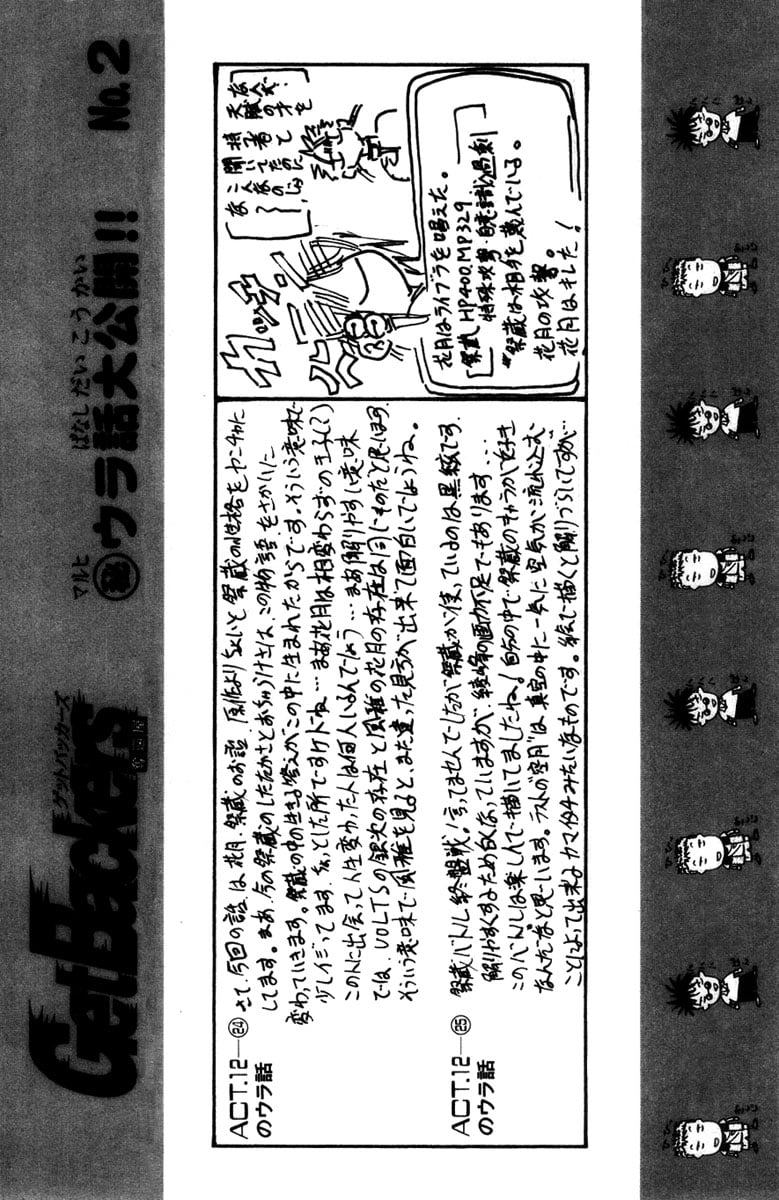 ゲットバッカーズ
GetBackers
奪還屋
マルヒ
㊙ウラ話大公開!!
ばなし だい こう かい
No.2
ACT.12―㉔
のウラ話
さて、今回の話は花月、祭蔵のお話。原作よりちょいと祭蔵の性格をヤンチャに
してます。まあ、今の祭蔵のしたたかさとおちゃらけさは、この物語をさかいに
変わっていきます。祭蔵の中の生きる答えがこの中に生まれたからです。そういう意味で
少しイジってます、ちょっとした所ですけドね…まあ花月は相変わらずの王子(?)
この人に出会って人生変わった人は何人いるんでしょう…まあ解りやすい意味
では、VOLTSの銀次の存在と風雅の花月の存在は同じものだと思います。
そういう意味で風雅を見ると、また違った見方が出来て面白いでしょうね。
ACT.12―㉕
のウラ話
祭蔵バトル終盤戦!言ってませんでしたが祭蔵が使っているのは黒絃です。
解りやすくするため白くなっていますが、綾峰の画力不足でもあります…
このバトルは楽しんで描いてましたね!自分の中で祭蔵のキャラがスキ
なんだなと思います。ラストの空月は真空の中に一気に空気が流れ込む
ことによって出来るカマイタチみたいなものです。絵で描くと解りづらいですが…
カッチーン
花月はライブラを唱えた。
祭蔵 HP400、MP329
特殊攻撃・自意識過剰
"祭蔵は相手を蔑んでいる。
花月の攻撃。
花月はキレた!